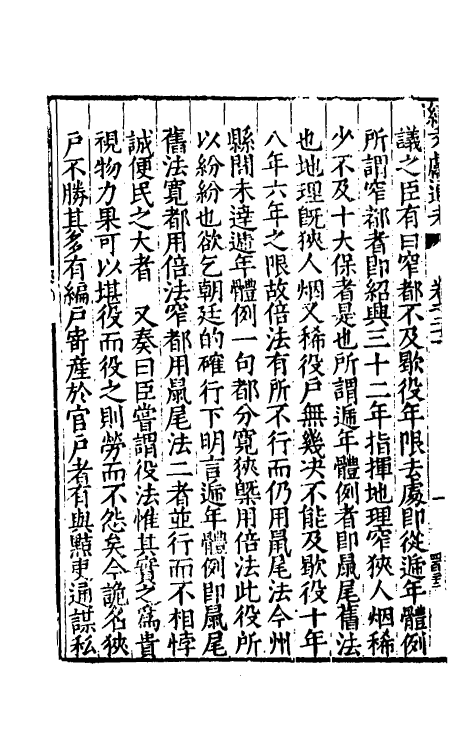 議之臣有曰窄都不及歇役年限去處即從遞年體例
所謂窄都者即紹興三十二年指揮地理窄狹人烟稀
少不及十大保者是也所謂遞年體例者即鼠尾舊法
也地理旣狹人烟又稀役戶無幾决不能及歇役十年
八年六年之限故倍法有所不行而仍用鼠尾法今州
縣間未達遞年體例一句都分寬狹槩用倍法此役所
以紛紛也欲乞朝廷的確行下明言遞年體例即鼠尾
舊法寬都用倍法窄都用鼠尾法二者並行而不相悖
誠便民之大者　又奏曰臣嘗謂役法惟其實之爲貴
視物力果可以堪役而役之則勞而不怨矣今詭名狹
戶不勝其多有編戶寄產於官戶者有與黠吏通謀私